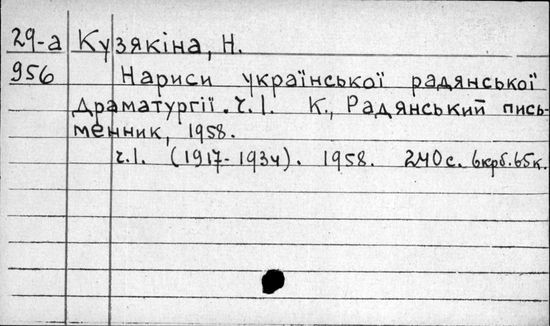 29-а Кузякіна, Н.
956 Нариси української радянської
драматургії. Ч.1. К., Радянський пись-
менник, 1958.
ч.1. (1917-1934). 1958. 240 с. 6крб.65к.